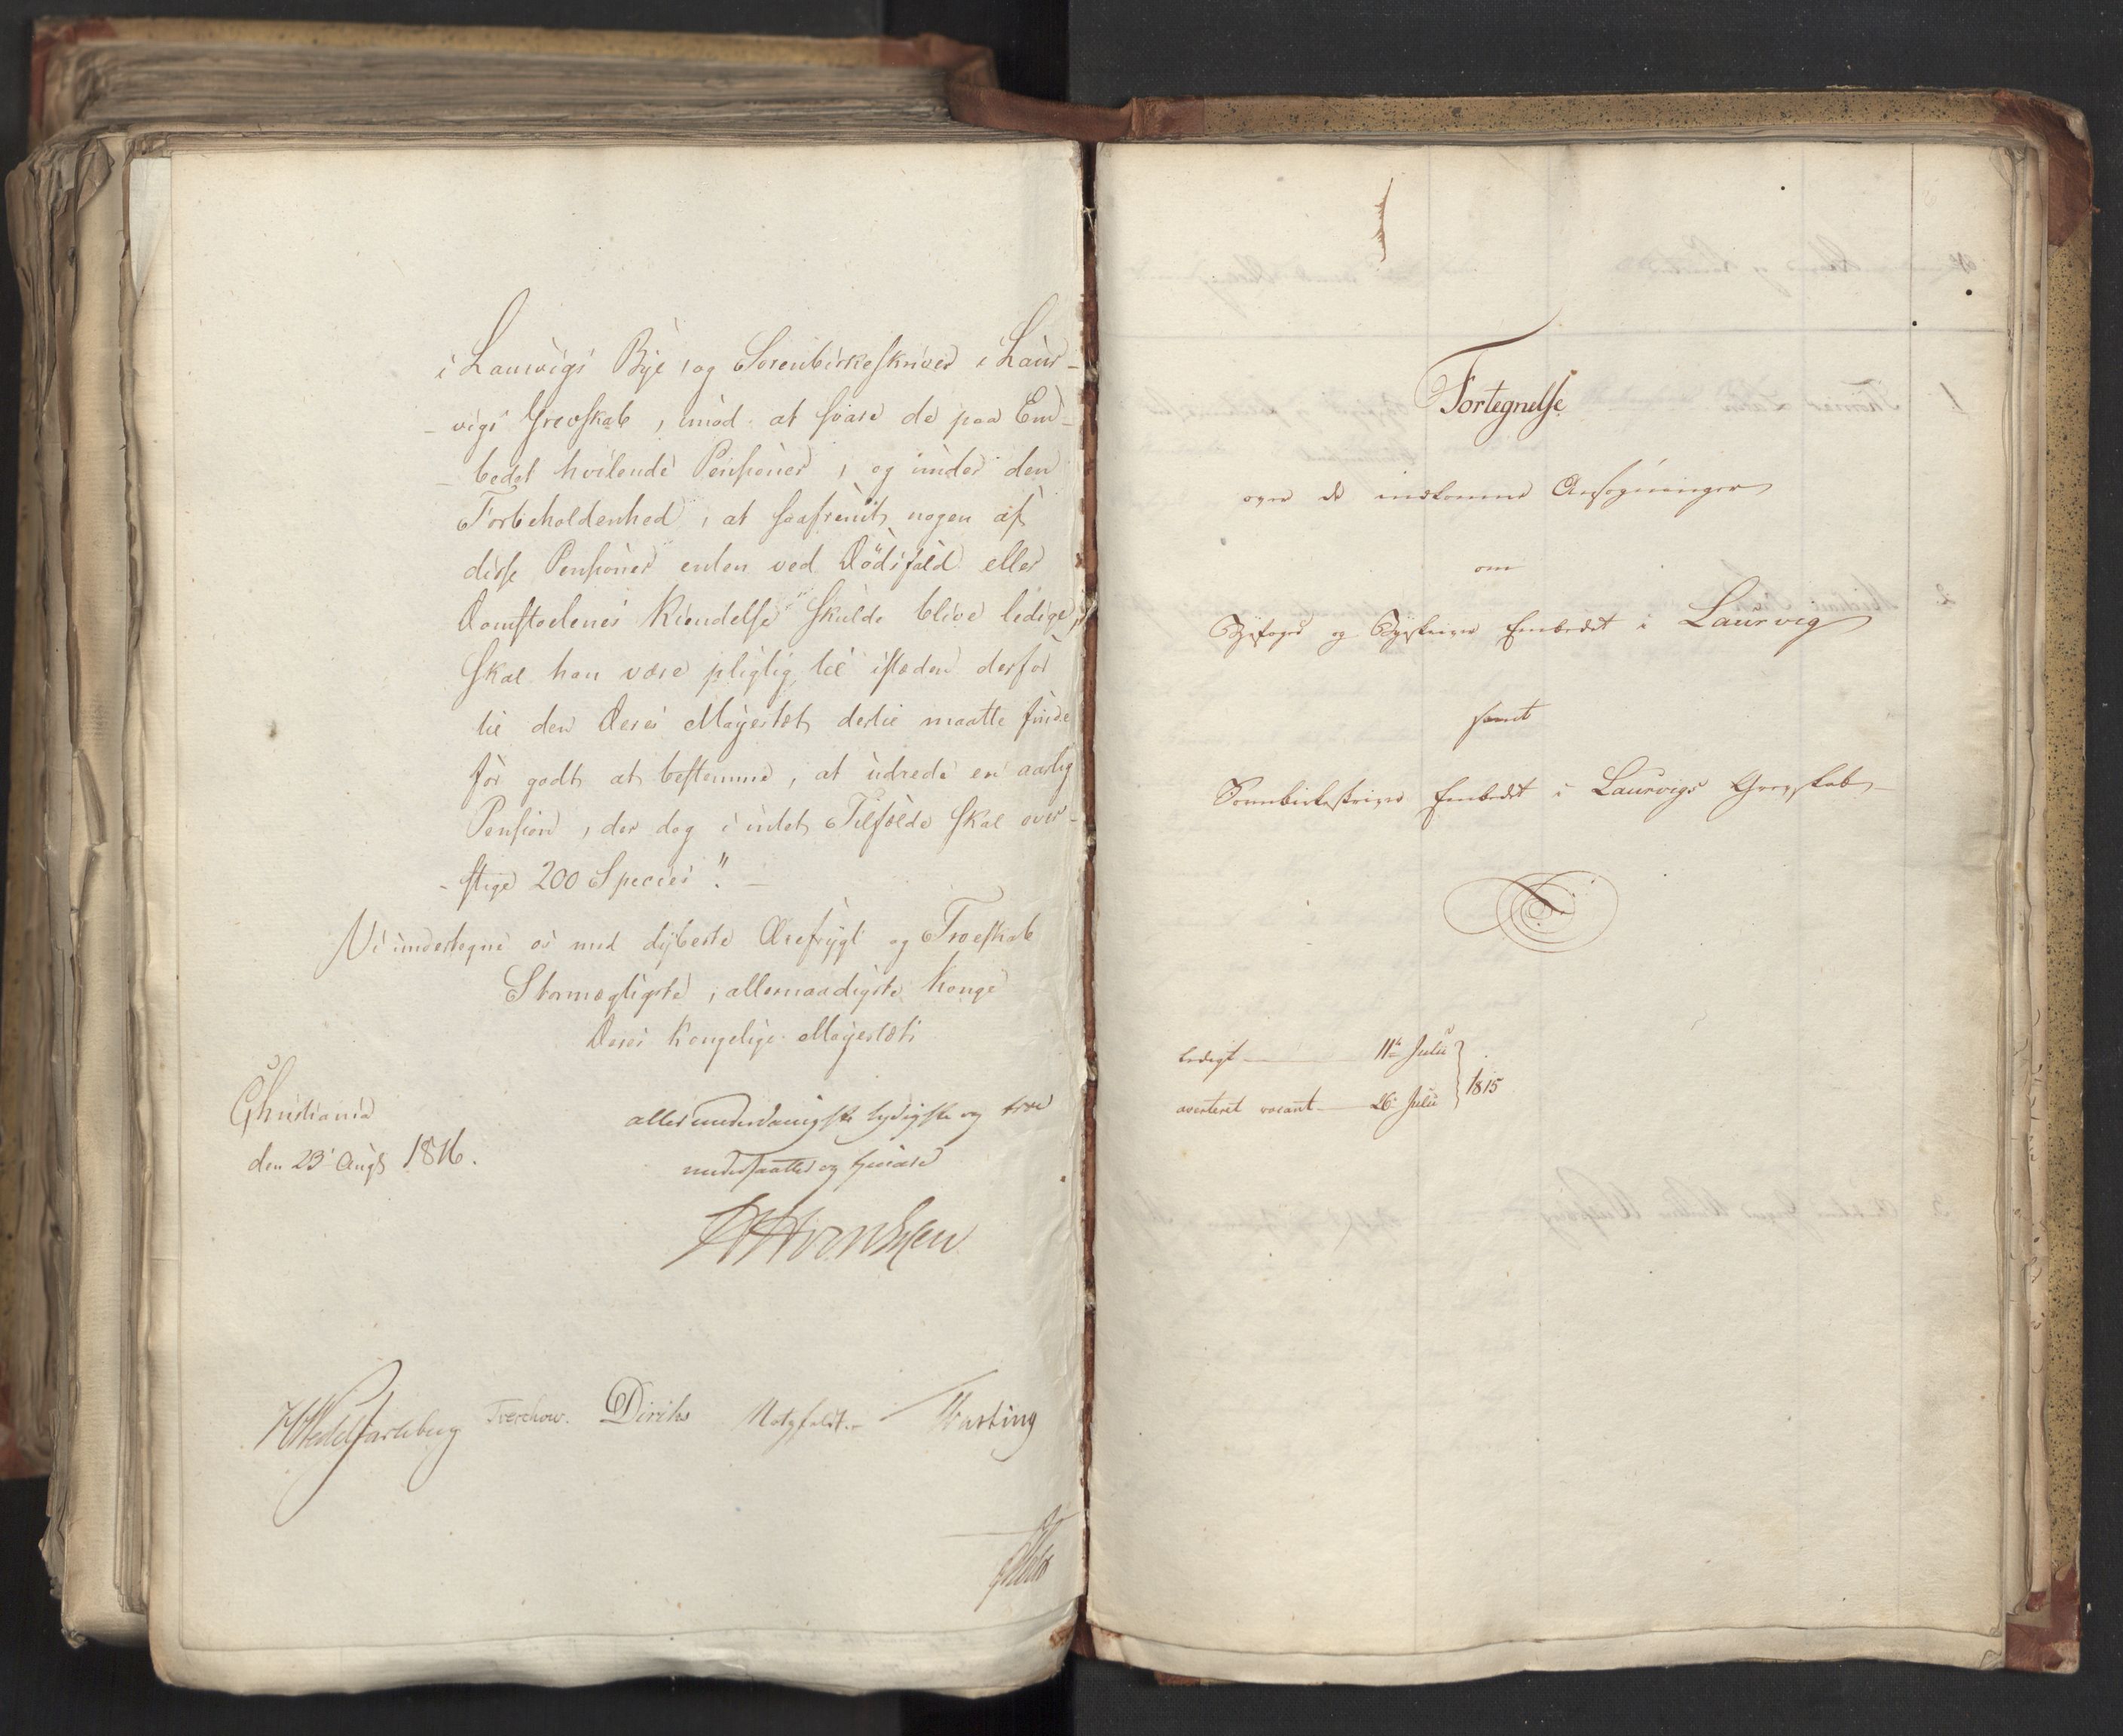 i Laurvigs Bye, og Sorenbirkeskriver i Laur-
-vigs Grevskab, imod at svare de paa Em-
-bedet hvilende Pensioner, og under den
Forbeholdenhed, at saafremt nogen af
disse Pensioner enten ved Dödsfald eller
Domstolenes Kiendelse skulde blive ledige,
skal han være pligtig til istæden derfor
til den Deres Majestæt dertil maatte finde
for godt at bestemme, at udrede en aarlig
Pension, der dog i intet Tilfælde skal over-
-stige 200 Species". —
Vi undertegne os med dybeste Ærefrygt og Troeskab
Stormægtigste, allernaadigste Konge
Deres Kongelige Majestæts
Christiania
den 23' Augt 1816.
allerunderdanigste lydigste og troe
undersaatter og tjenere
Wedel Jarlsberg Treschow. Diriks Motzfeldt. — Hasting
Fortegnelse
over de indkomne Ansøgninger
om
Byefoged og Byskriver Embedet i Laurvig
samt
Sorenbirkeskriver Embedet i Laurvigs Grevskab —
ledigt — 11te Julii
averteret vacant — 26. Julii 1815